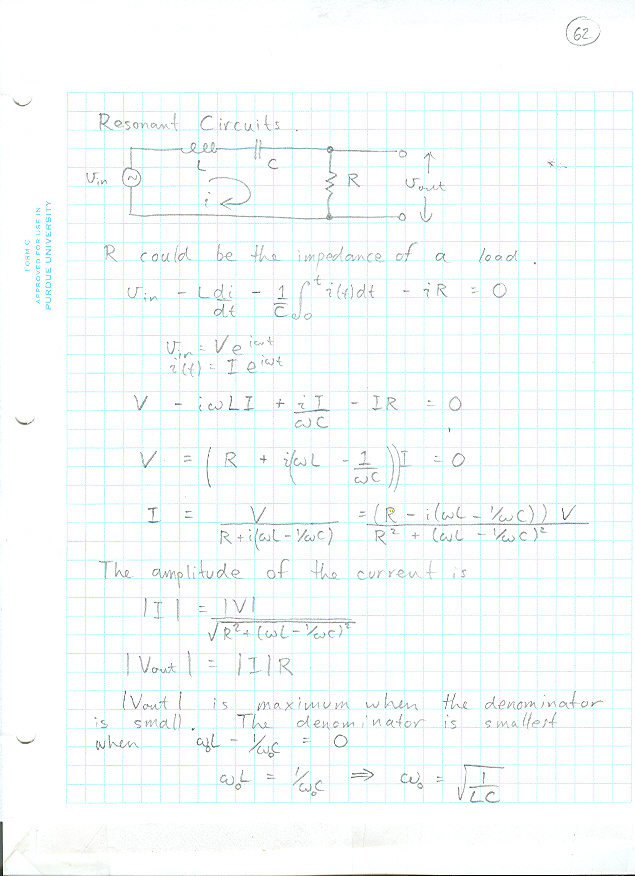 62
Resonant Circuits.
L C
v_in ~ i R v_out
FORM C
APPROVED FOR USE IN
PURDUE UNIVERSITY
R could be the impedance of a load.
v_in - L di/dt - 1/C ∫_0^t i(t)dt - iR = 0
v_in = V e^{iωt}
i(t) = I e^{iωt}
V - iωLI + iI/ωC - IR = 0
V = (R + i(ωL - 1/ωC))I = 0
I = V/(R + i(ωL - 1/ωC)) = (R - i(ωL - 1/ωC)) V/(R² + (ωL - 1/ωC)²)
The amplitude of the current is
|I| = |V|/√(R² + (ωL - 1/ωC)²)
|Vout| = |I|R
|Vout| is maximum when the denominator
is small. The denominator is smallest
when ω₀L - 1/ω₀C = 0
ω₀L = 1/ω₀C ⇒ ω₀ = √(1/LC)